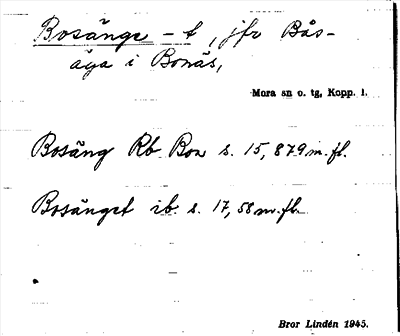 Bosänge – t, jfr Bås-
äga i Bonäs,
Mora sn o. tg, Kopp. l.
Bosäng Rb Bon s. 15, 879 m. fl.
Bosänget ib. s. 17, 58 m. fl.
Bror Lindén 1945.